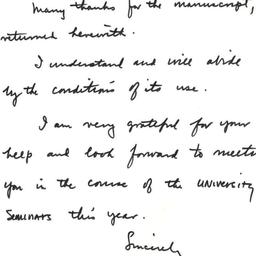 Many thanks for the manuscript,
returned herewith.
I understand and will abide
by the conditions of its use.
I am very grateful for your
help and look forward to meets
you in the course of the UNIVERSITY
SEMINARS this year.
Sincerely